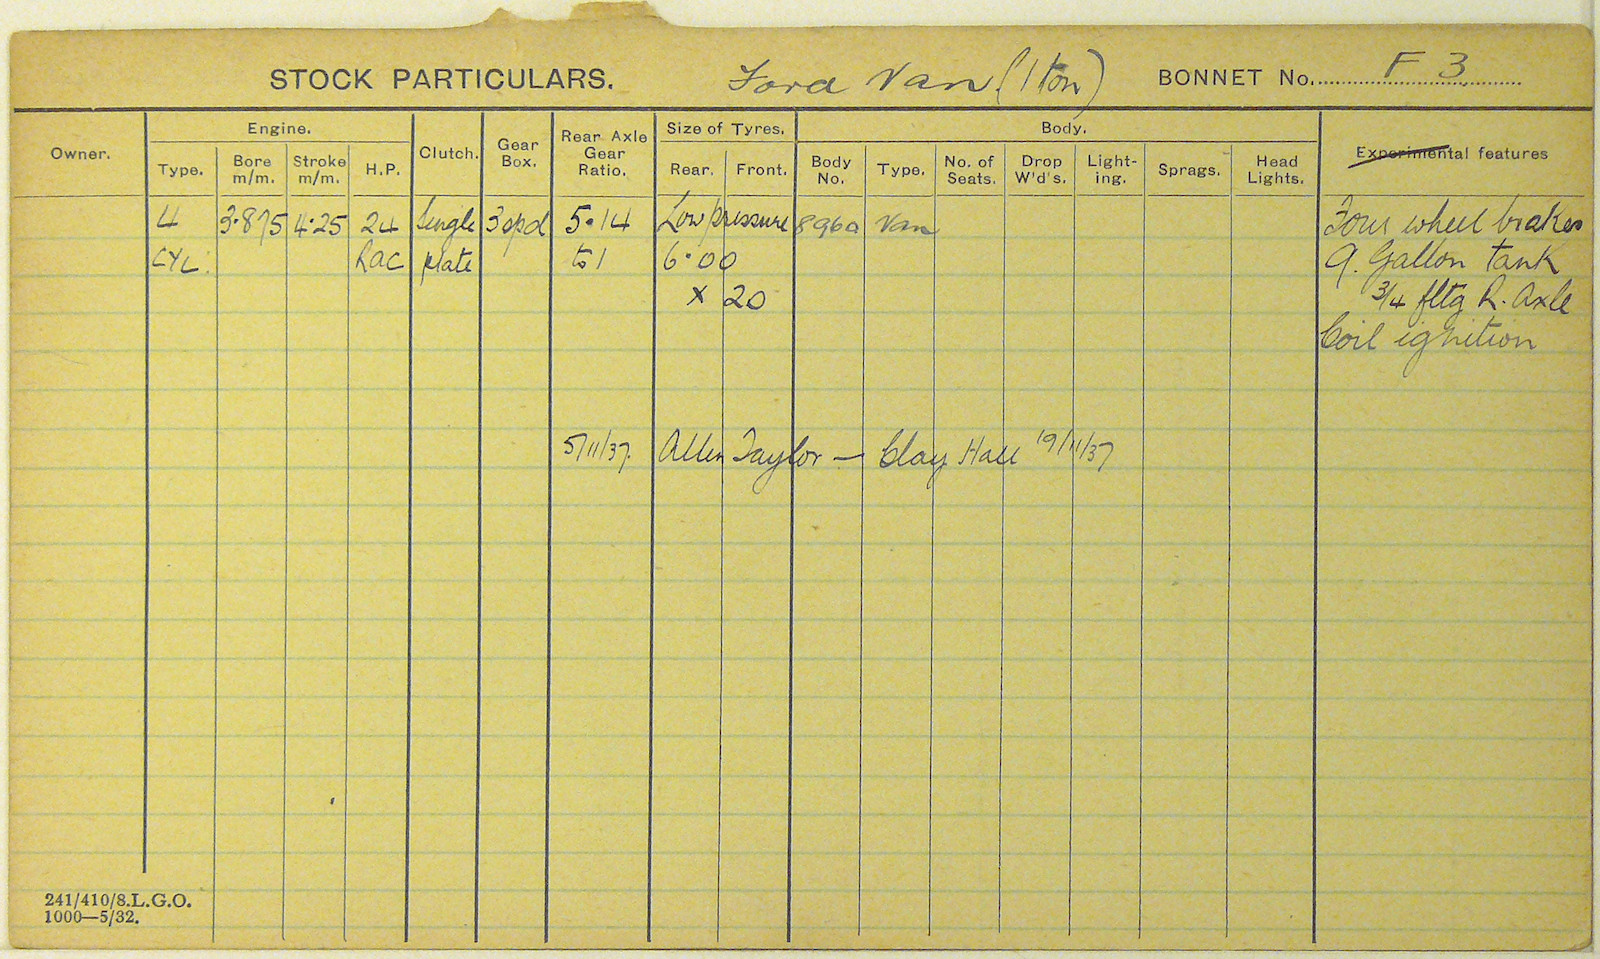 STOCK PARTICULARS. Ford Van (1 ton) BONNET No. F 3
Owner. Engine. Clutch. Gear Box. Rear Axle Gear Ratio. Size of Tyres. Body. Experimental features
Type. Bore m/m. Stroke m/m. H.P. Rear. Front. Body No. Type. No. of Seats. Drop W'd's. Light-ing. Sprags. Head Lights.
4 3.875 4.25 24 Single 3 spd 5.14 Low pressure 896a Van Four wheel brakes
CYL. RAC plate to 1 6.00 9. Gallon tank
x 20 3/4 fltg R. Axle
Coil ignition
5/11/37. Allen Taylor — Clay Hall 19/11/37
241/410/8.L.G.O.
1000—5/32.